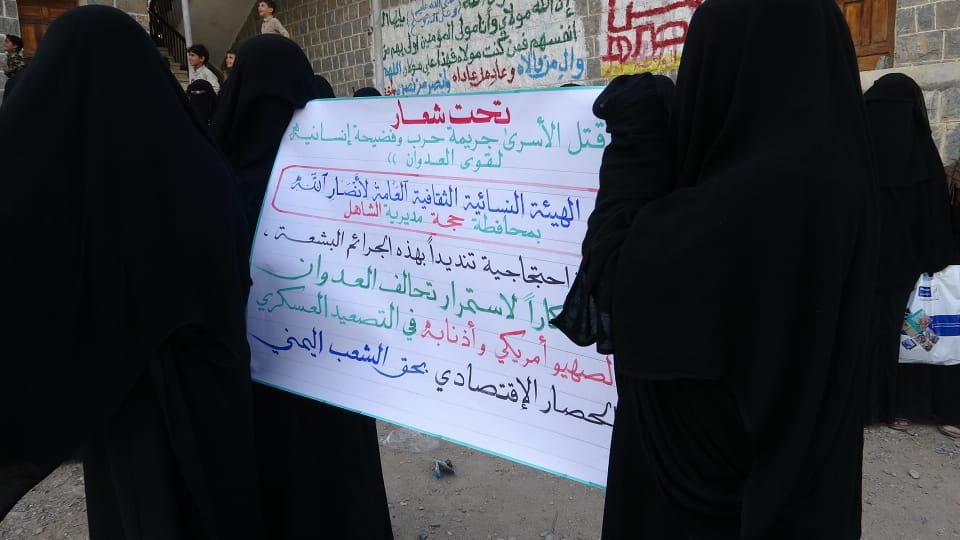 إن الله مولاي وأنا مولى المؤمنين أولى بهم من
أنفسهم فمن كنت مولاه فهذا علي مولاه اللهم
وال من والاه وعاد من عاداه وانصر من نصره
تحت شعار
قتل الأسرى جريمة حرب وفضيحة إنسانية
لقوى العدوان ))
الهيئة النسائية الثقافية العامة لأنصار الله
بمحافظة حجة مديرية الشاهل
احتجاجية تنديداً بهذه الجرائم البشعة ،
لاستمرار تحالف العدوان
أمريكي وأذنابه في التصعيد العسكري
الحصار الإقتصادي بحق الشعب اليمني